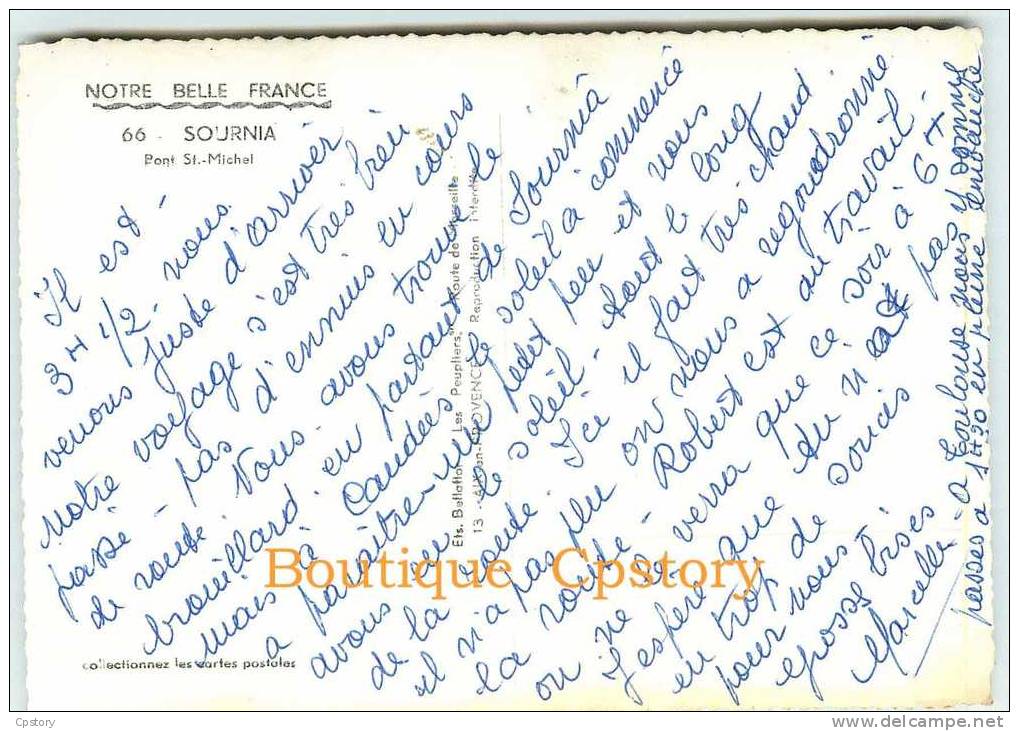 NOTRE BELLE FRANCE
66 - SOURNIA
Pont St.-Michel
Il est -
3 H 1/2. nous
venons juste d'arriver
notre voyage s'est très bien
passé - pas d'ennuis en cours
de route. Nous avons trouvé le
brouillard en partant de Sournia
mais à Caudiès le soleil a commencé
a paraître - une petit peu et nous
avons eu le soleil tout le long
de la route Ici il fait très chaud
il n'a pas plu on nous a regoudronné
la route - Robert est au travail
on ne verra que ce soir à 6 H
J'espère que du
en trop de soucis pas
pour nous -
grosses bises
Marcelle
a Toulouse nous y sommes
passés a 1 H 20 en pleine embauche
Ets. Bellator Les Peupliers, Route de Marseille
13 - AIX-en-PROVENCE Reproduction Interdite
collectionnez les cartes postales
Boutique Cpstory
Cpstory
www.delcampe.net